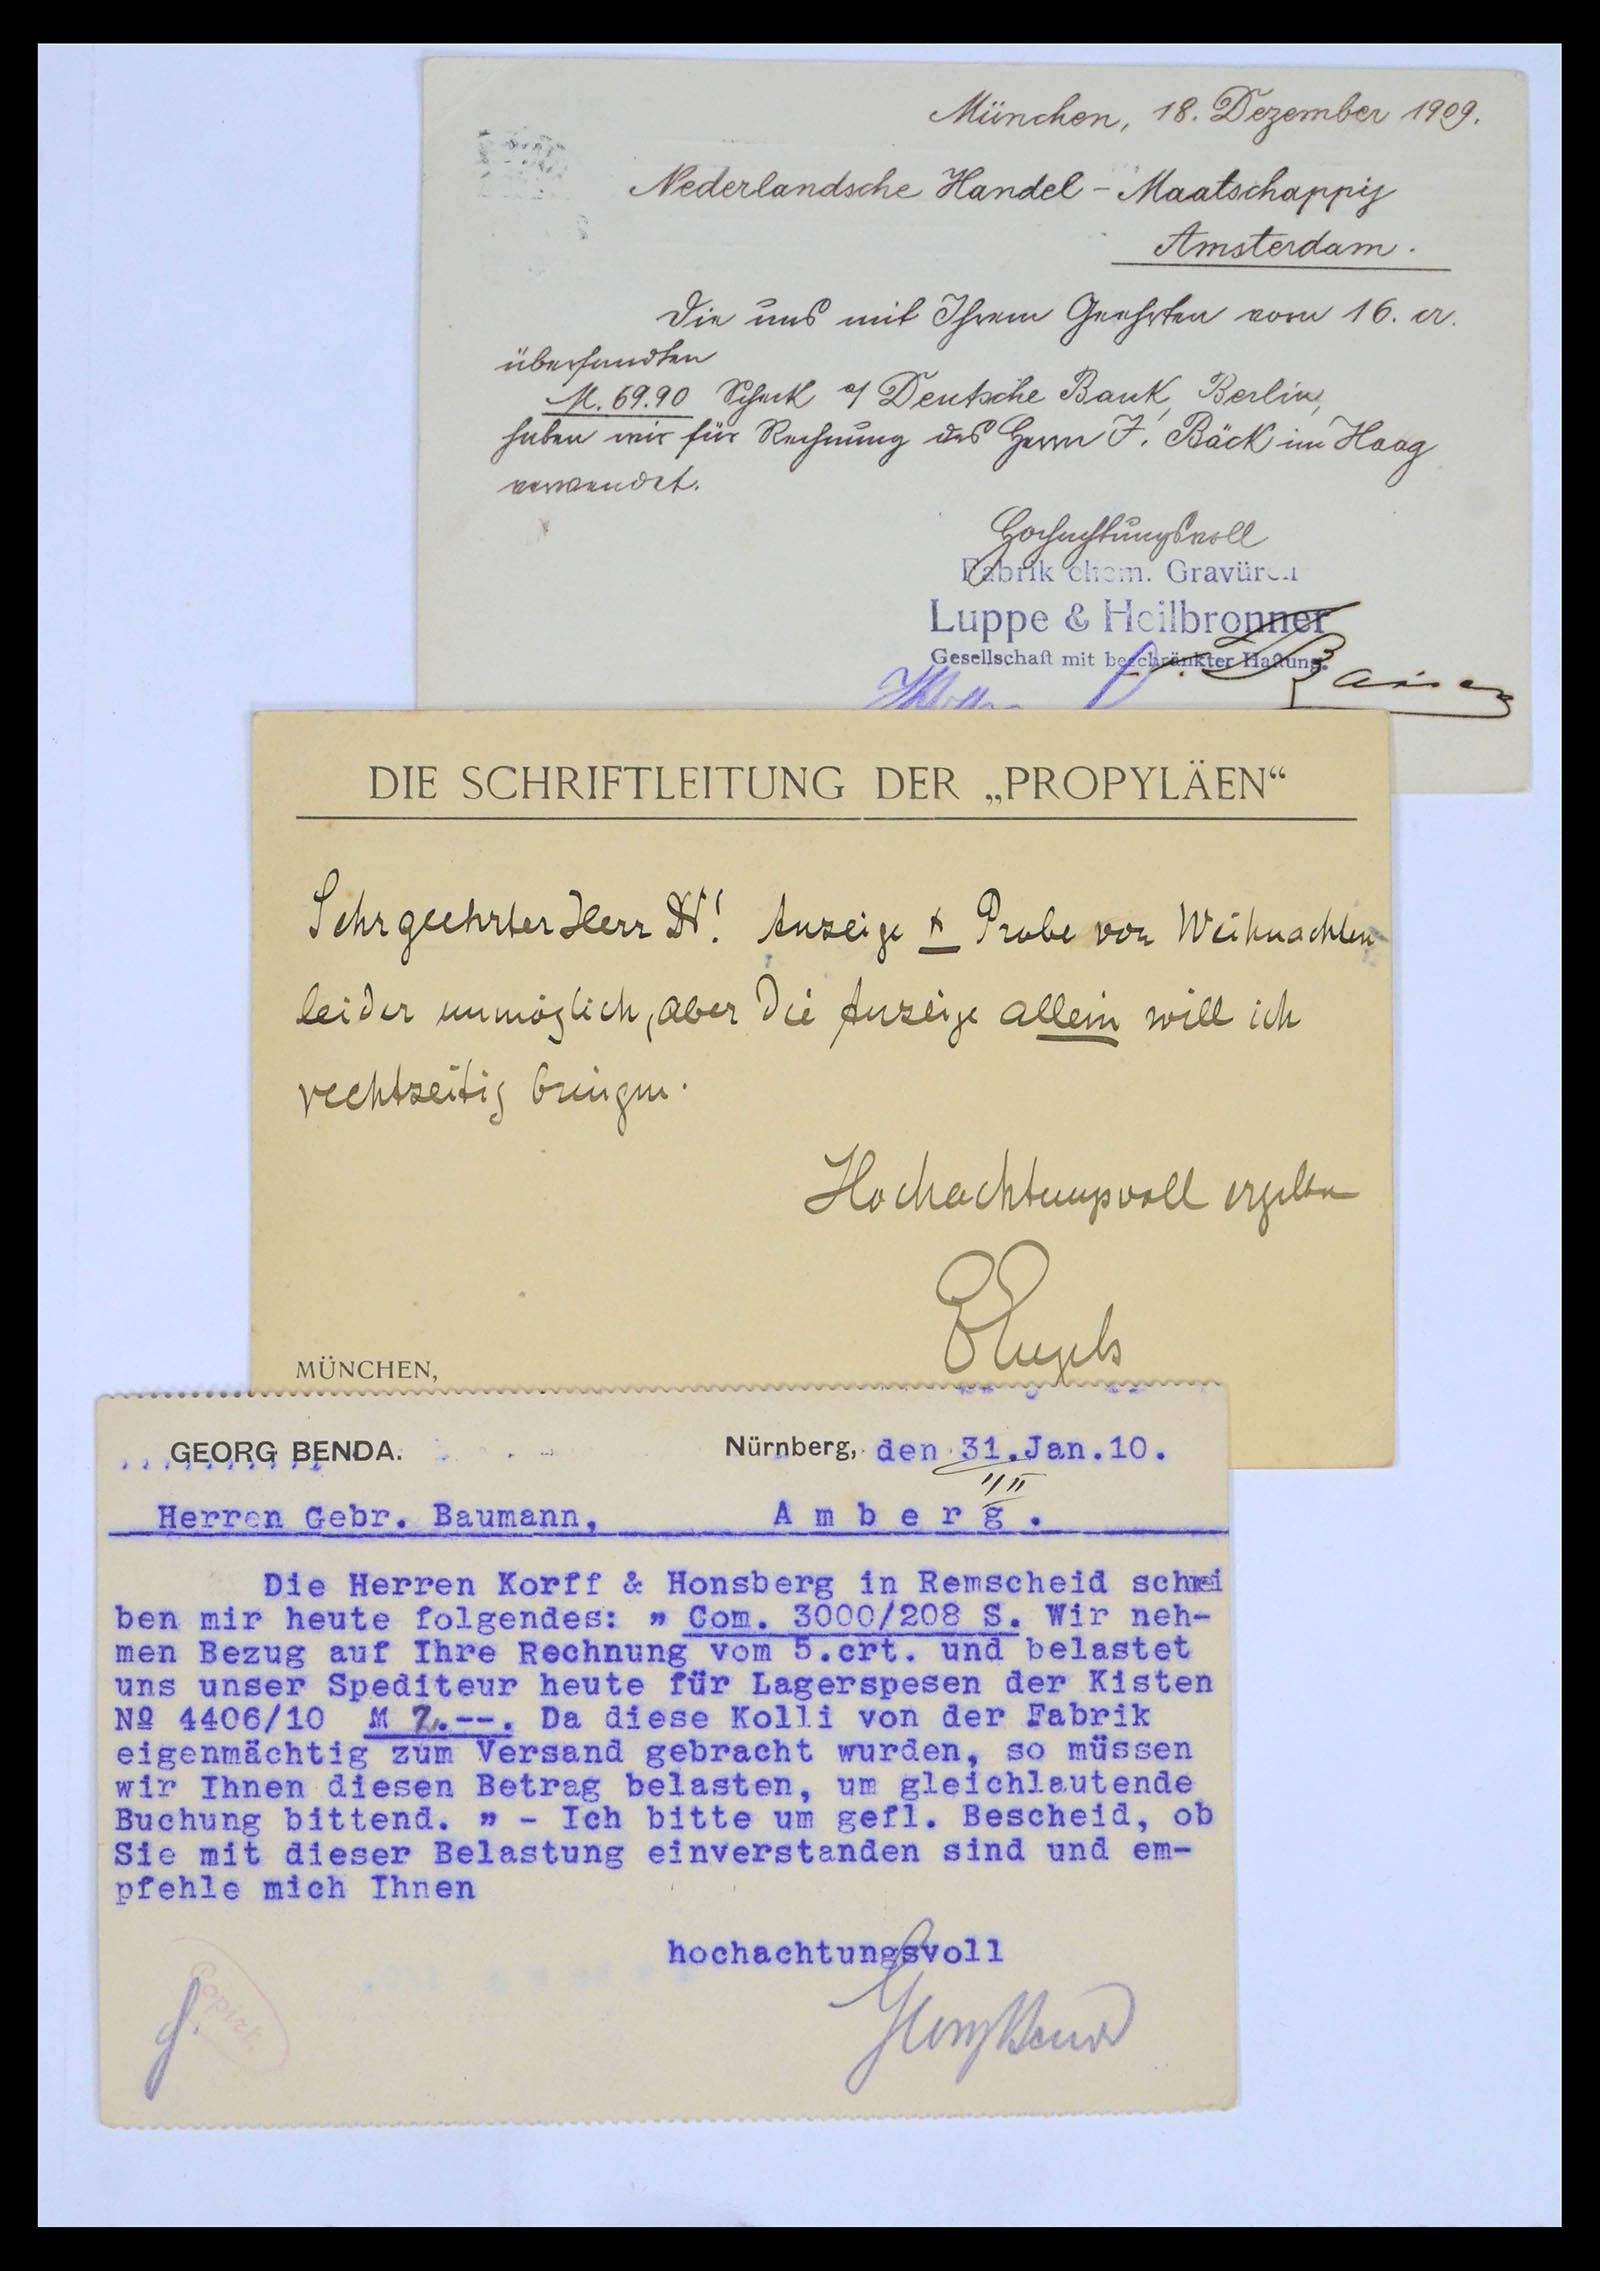 München, 18. Dezember 1909.
Nederlandsche Handel-Maatschappij
Amsterdam.
Die uns mit Ihrem Geehrten vom 16. cr.
übersandten
M. 69.90 Scheck a/ Deutsche Bank, Berlin,
haben wir für Rechnung des Herrn J. Bäck im Haag
verwendet.
Hochachtungsvoll
Fabrik chem. Gravüren
Luppe & Heilbronner
Gesellschaft mit beschränkter Haftung.
DIE SCHRIFTLEITUNG DER „PROPYLÄEN“
Sehr geehrter Herr Dr! Anzeige + Probe vor Weihnachten
leider unmöglich, aber die Anzeige allein will ich
rechtzeitig bringen.
Hochachtungsvoll ergeben
EEngels
MÜNCHEN,
GEORG BENDA. Nürnberg, den 31.Jan.10.
1/II
Herren Gebr. Baumann, Amberg.
Die Herren Korff & Honsberg in Remscheid schrei
ben mir heute folgendes: " Com. 3000/208 S. Wir neh-
men Bezug auf Ihre Rechnung vom 5.crt. und belastet
uns unser Spediteur heute für Lagerspesen der Kisten
Nº 4406/10 M 7.--. Da diese Kolli von der Fabrik
eigenmächtig zum Versand gebracht wurden, so müssen
wir Ihnen diesen Betrag belasten, um gleichlautende
Buchung bittend. " - Ich bitte um gefl. Bescheid, ob
Sie mit dieser Belastung einverstanden sind und em-
pfehle mich Ihnen
hochachtungsvoll
Georg Benda
Copirt